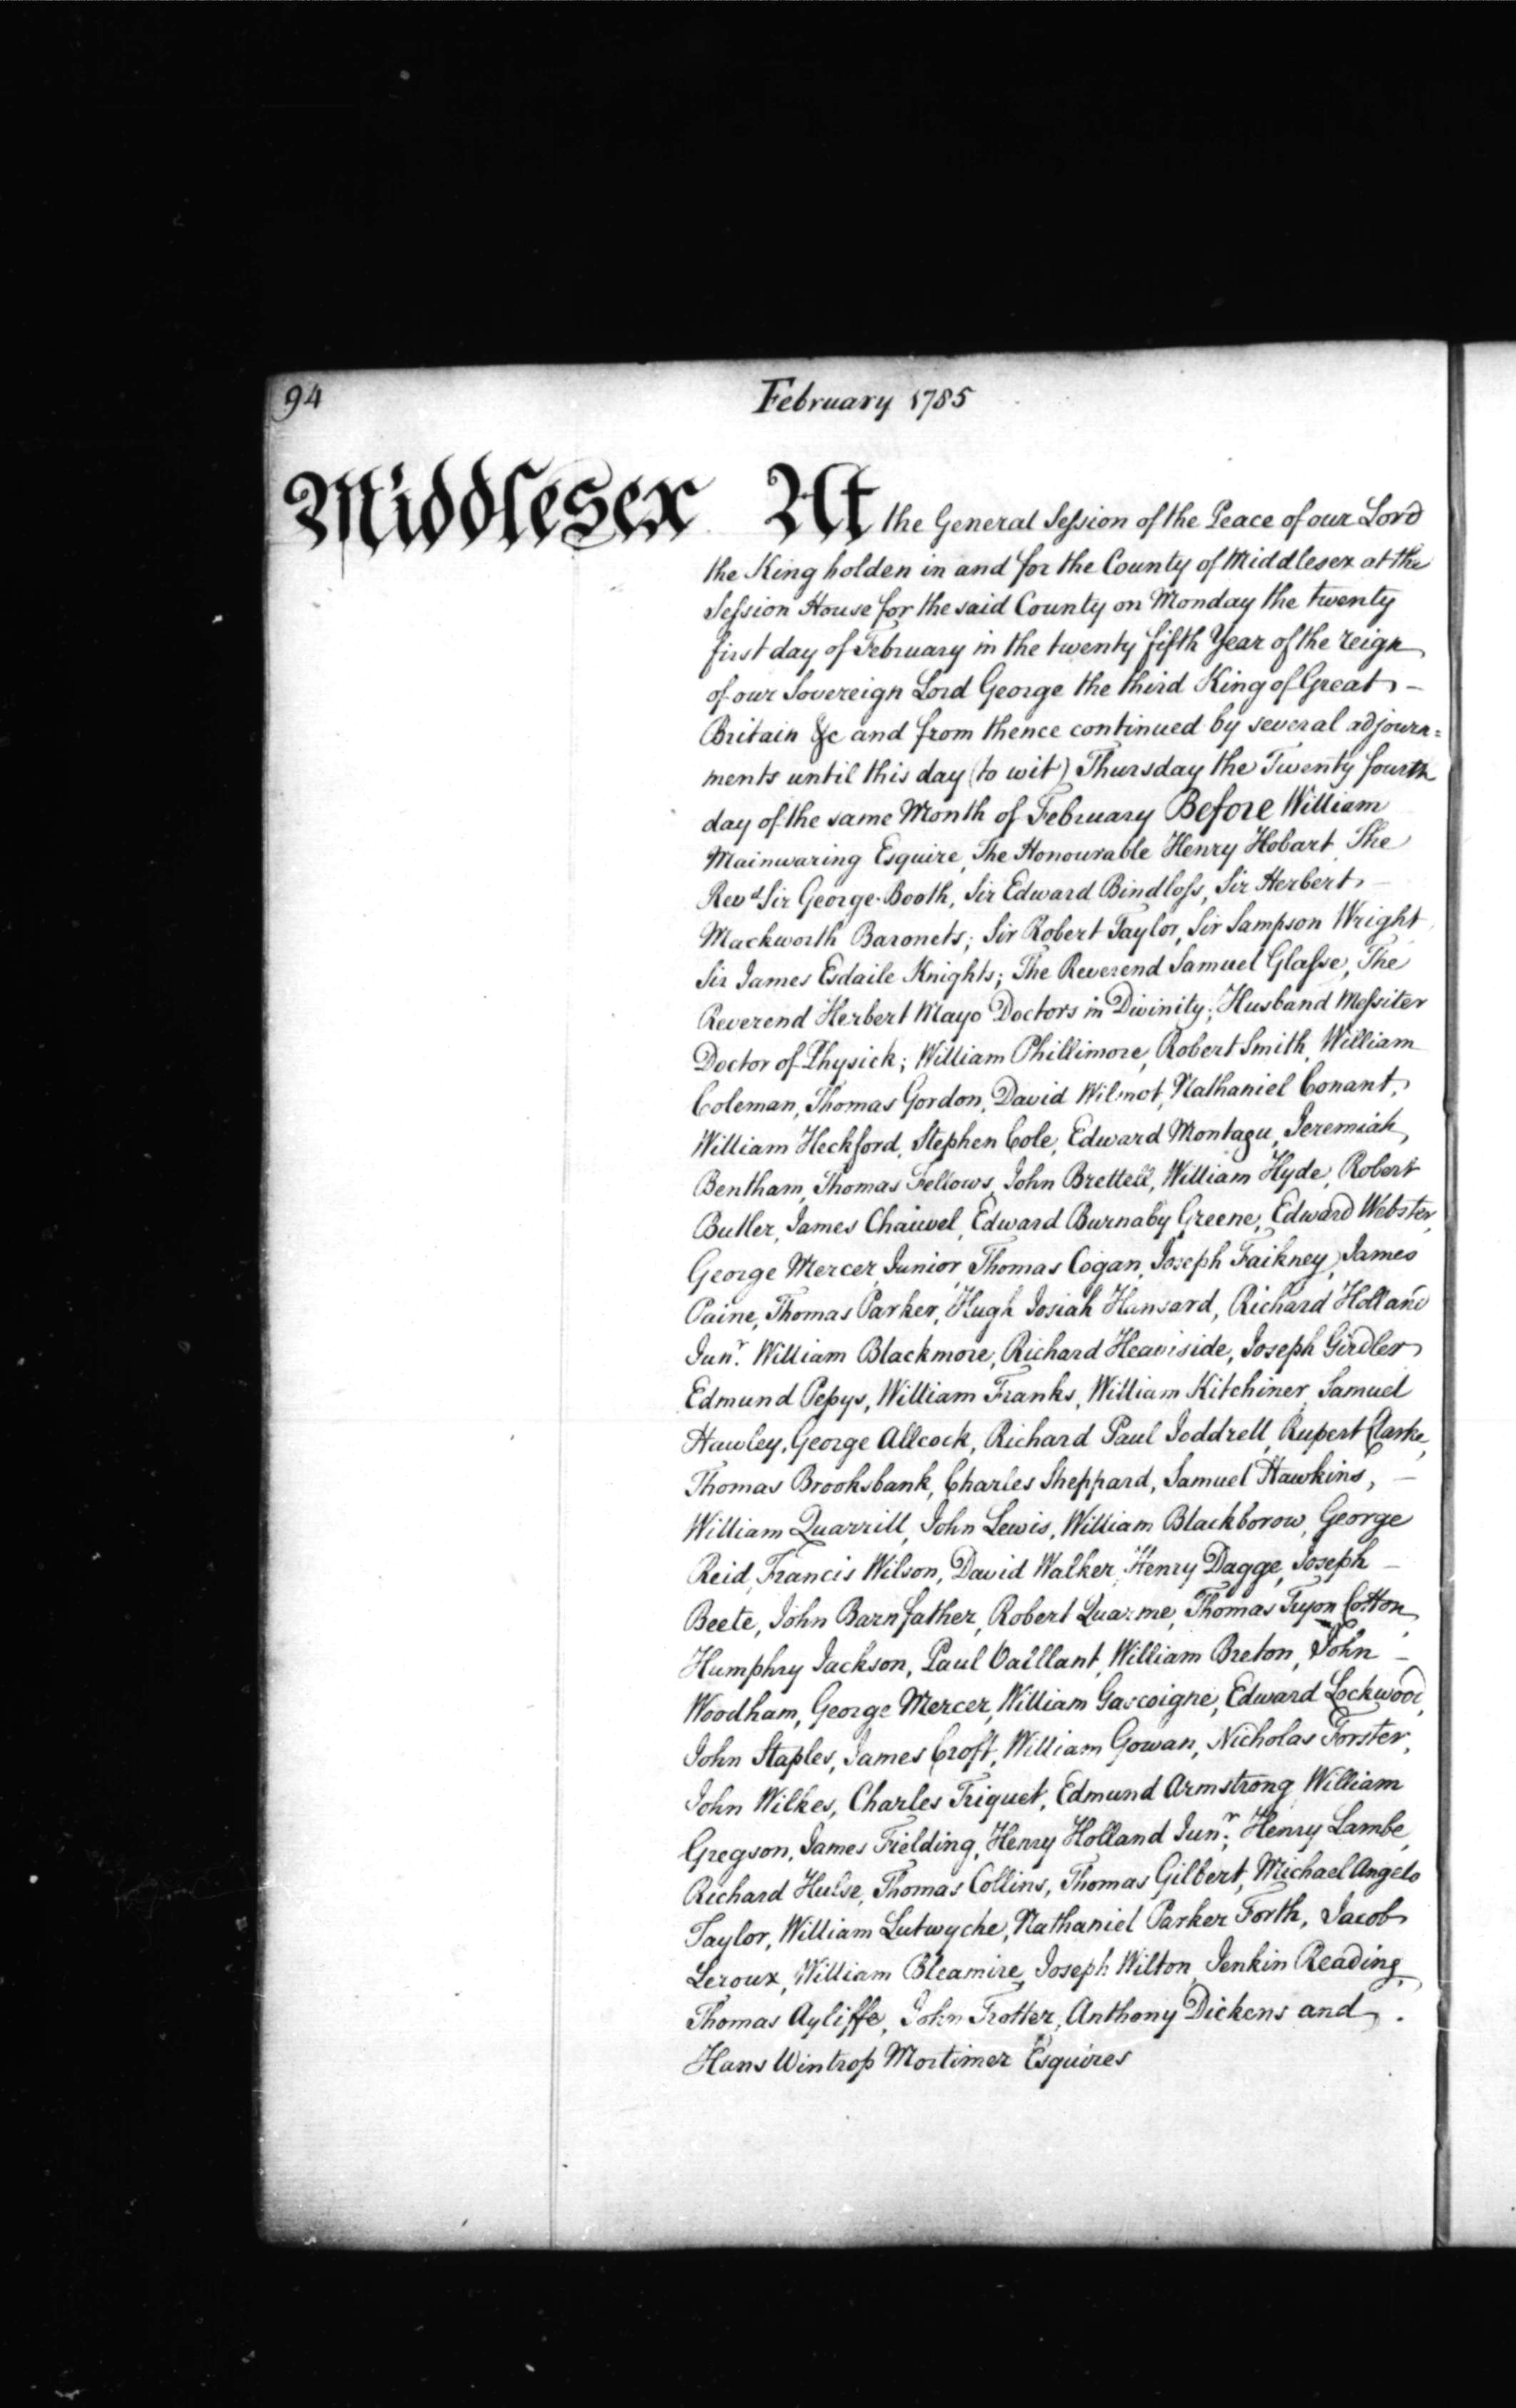 94
February 1785
Middlesex At the General Session of the Peace of our Lord
the King holden in and for the County of Middlesex at the
Session House for the said County on Monday the twenty
first day of February in the twenty fifth Year of the reign
of our Sovereign Lord George the third King of Great -
Britain &c and from thence continued by several adjourn=
ments until this day (to wit) Thursday the Twenty fourth
day of the same Month of February Before William
Mainwaring Esquire, The Honourable Henry Hobart The
Revd Sir George Booth, Sir Edward Bindloss, Sir Herbert -
Mackworth Baronets; Sir Robert Taylor, Sir Sampson Wright,
Sir James Esdaile Knights; The Reverend Samuel Glasse, The
Reverend Herbert Mayo Doctors in Divinity; Husband Messiter
Doctor of Physick; William Phillimore, Robert Smith, William
Coleman, Thomas Gordon, David Wilmot, Nathaniel Conant,
William Heckford, Stephen Cole, Edward Montagu, Jeremiah
Bentham, Thomas Fellows, John Brettell, William Hyde, Robert
Butler, James Chauvel, Edward Burnaby Greene, Edward Webster,
George Mercer Junior, Thomas Cogan, Joseph Faikney, James
Paine, Thomas Parker, Hugh Josiah Hansard, Richard Holland
Junr. William Blackmore, Richard Heaviside, Joseph Girdler
Edmund Pepys, William Franks, William Kitchiner, Samuel
Hawley, George Allcock, Richard Paul Joddrell, Rupert Clarke,
Thomas Brooksbank, Charles Sheppard, Samuel Hawkins, -
William Quarrill, John Lewis, William Blackborow, George
Reid, Francis Wilson, David Walker, Henry Dagge, Joseph -
Beete, John Barnfather, Robert Quarme, Thomas Tryon Cotton,
Humphry Jackson, Paul Vaillant, William Breton, John -
Woodham, George Mercer, William Gascoigne, Edward Lockwood,
John Staples, James Croft, William Gowan, Nicholas Forster,
John Wilkes, Charles Triquet, Edmund Armstrong, William
Gregson, James Fielding, Henry Holland Junr; Henry Lambe,
Richard Hulse, Thomas Collins, Thomas Gilbert, Michael Angelo
Taylor, William Lutwyche, Nathaniel Parker Forth, Jacob
Leroux, William Bleamire, Joseph Wilton, Jenkin Reading,
Thomas Ayliffe, John Trotter, Anthony Dickens and .
Hans Wintrop Mortimer Esquires